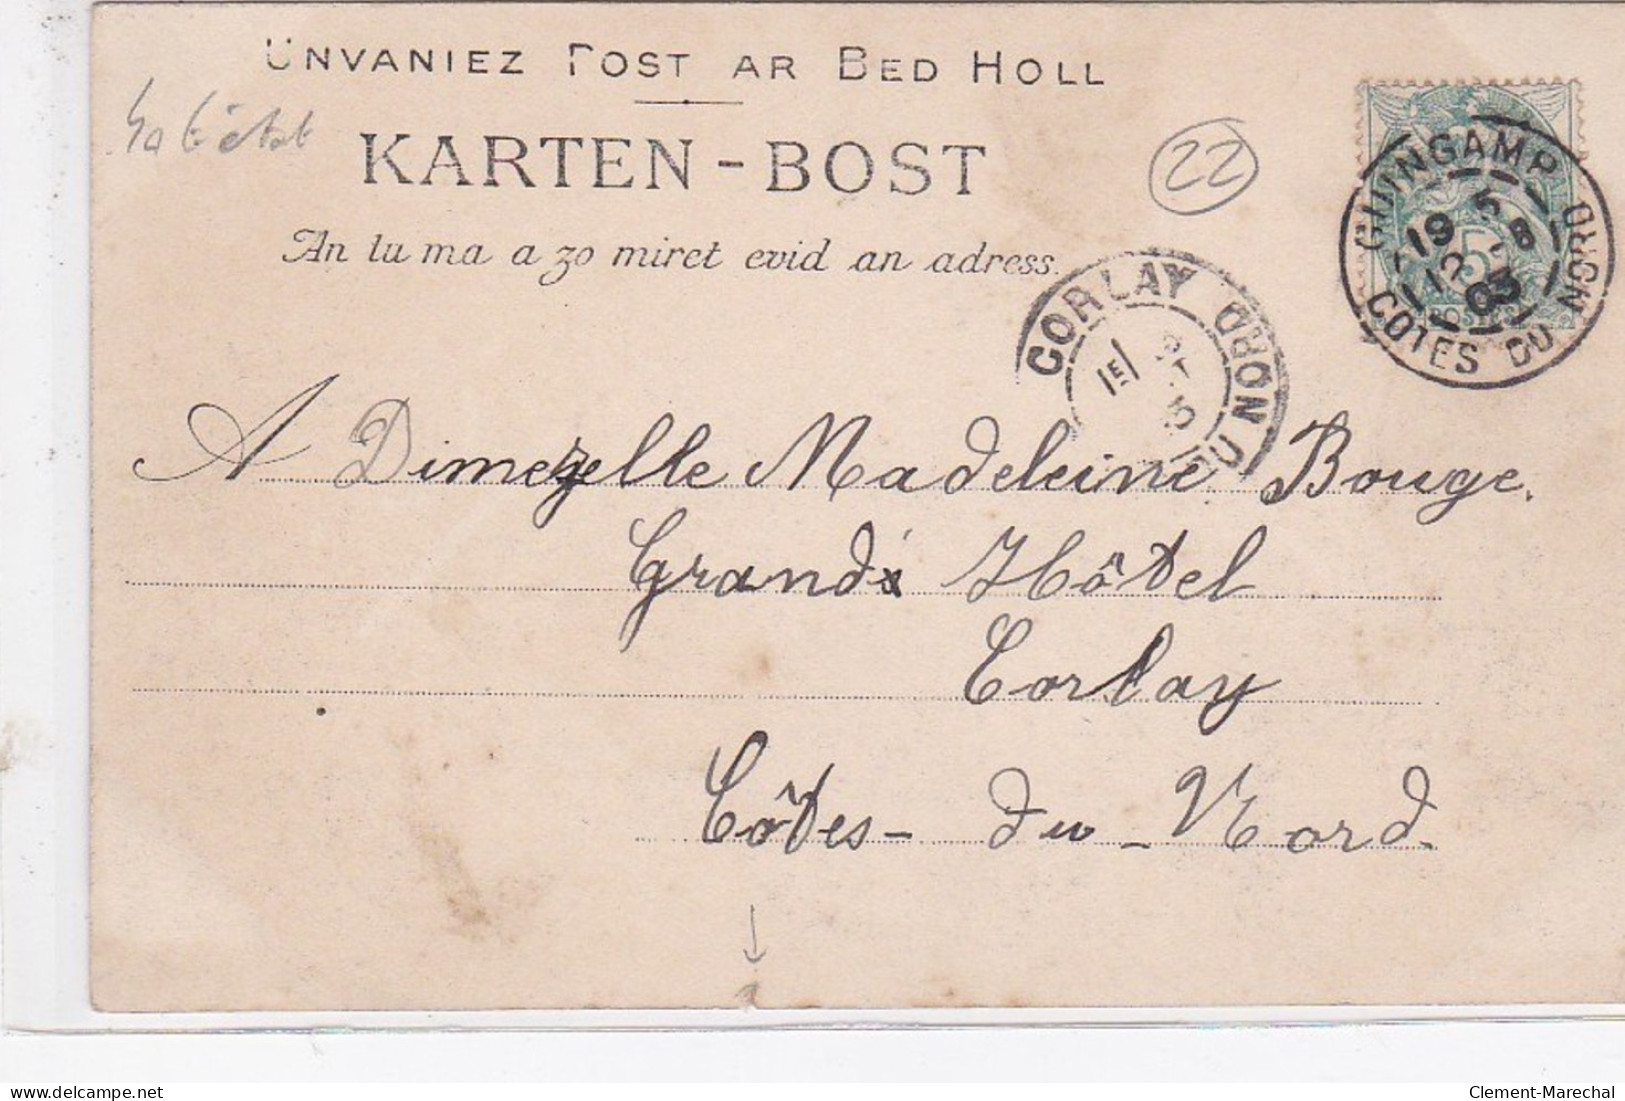 UNVANIEZ POST AR BED HOLL
KARTEN-BOST
An tu ma a zo miret evid an adress.
22
GUINGAMP
CÔTES DU NORD
19 5
12 8
03
5
POSTES
CORLAY
DU NORD
1E
A Dimezelle Madeleine Bouge.
Grand Hôtel
Corlay
Côtes-du-Nord.
Clement-Marechal